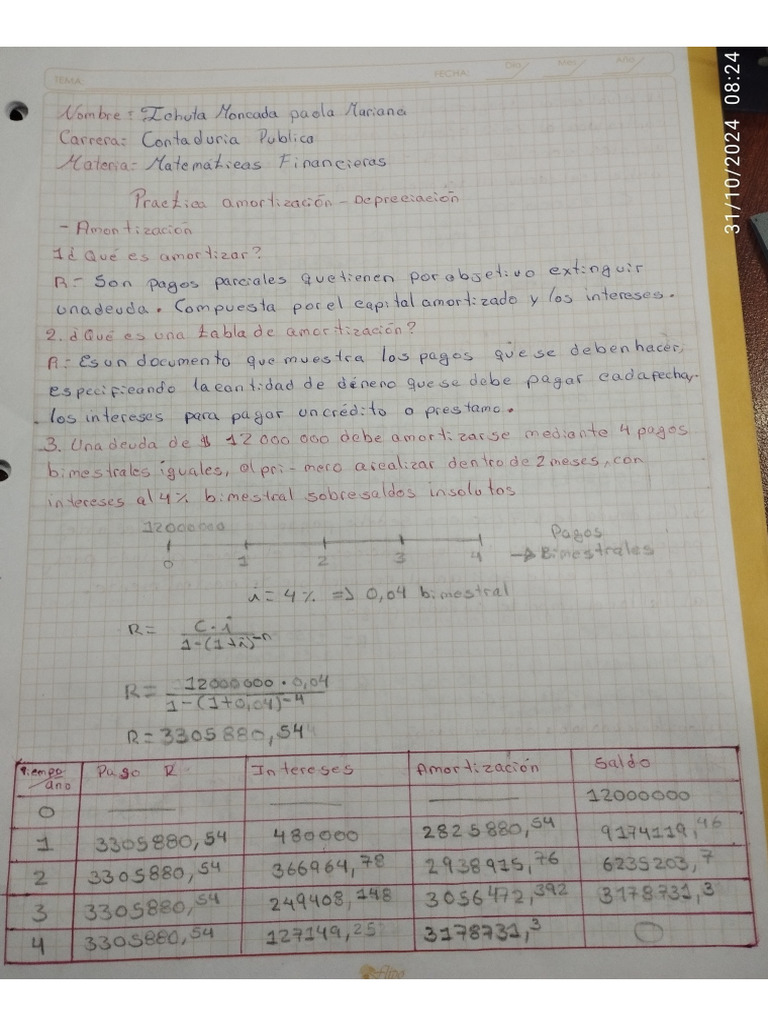 TEMA:
FECHA: Día Mes Año
31/10/2024 08:24
Nombre: Ichuta Moncada paola Mariana
Carrera: Contaduria Publica
Materia: Matemáticas Financieras
Practica amortización - Depreciación
- Amortización
1¿Qué es amortizar?
R= Son pagos parciales que tienen por objetivo extinguir
una deuda. Compuesta por el capital amortizado y los intereses.
2. ¿Qué es una tabla de amortización?
R= Es un documento que muestra los pagos que se deben hacer,
especificando la cantidad de dinero que se debe pagar cada fecha,
los intereses para pagar un crédito o prestamo.
3. Una deuda de $ 12 000 000 debe amortizarse mediante 4 pagos
bimestrales iguales, el pri-mero a realizar dentro de 2 meses, con
intereses al 4% bimestral sobre saldos insolutos
12000000
0 1 2 3 4
Pagos
→ Bimestrales
i = 4% => 0,04 bimestral
R = C·i / 1-(1+i)^-n
R = 12000000·0,04 / 1-(1+0,04)^-4
R = 3305880,54
Tiempo/año Pago R Intereses Amortización Saldo
0 — — — 12000000
1 3305880,54 480000 2825880,54 9174119,46
2 3305880,54 366964,78 2938915,76 6235203,7
3 3305880,54 249408,148 3056472,392 3178731,3
4 3305880,54 127149,25 3178731,3 0